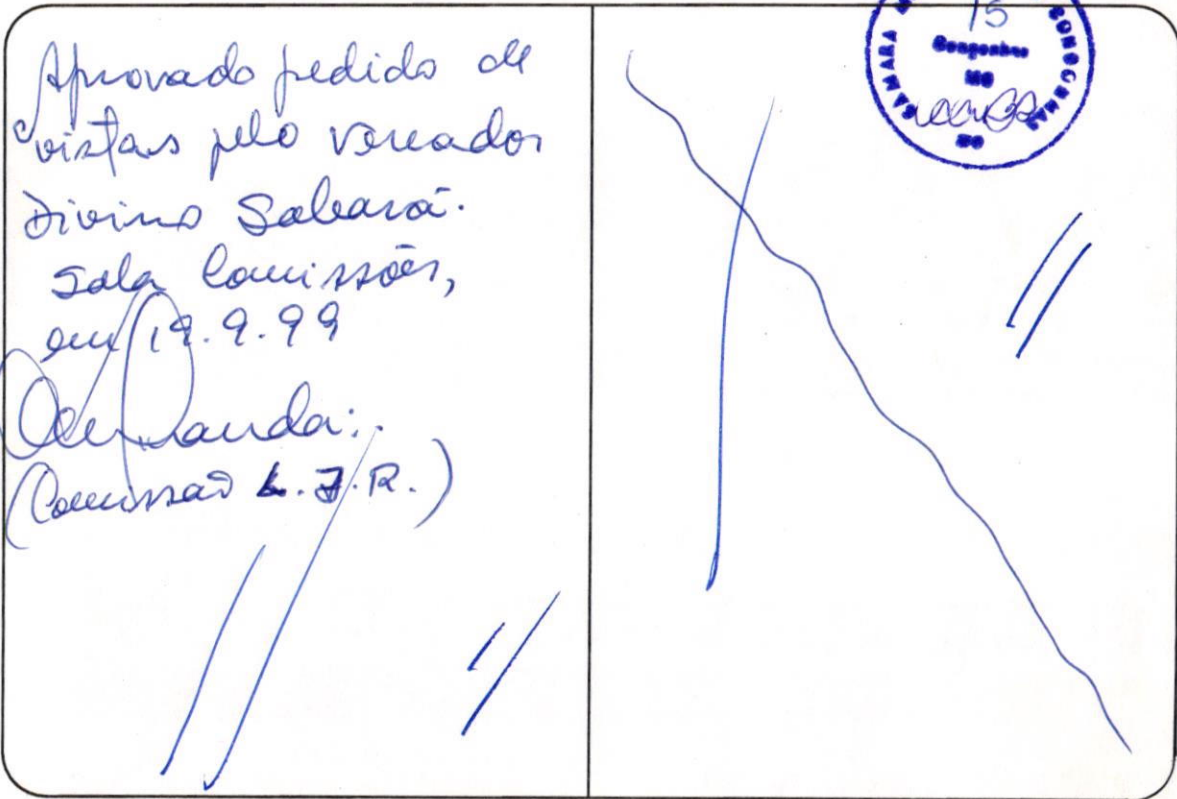 Aprovado pedido de
vistas pelo vereador
Divino Sabará.
Sala Comissões,
em 19.9.99
(Comissão L.J.R.)
15
CAMARA
CONGONHAS
Congonhas
MG
MG